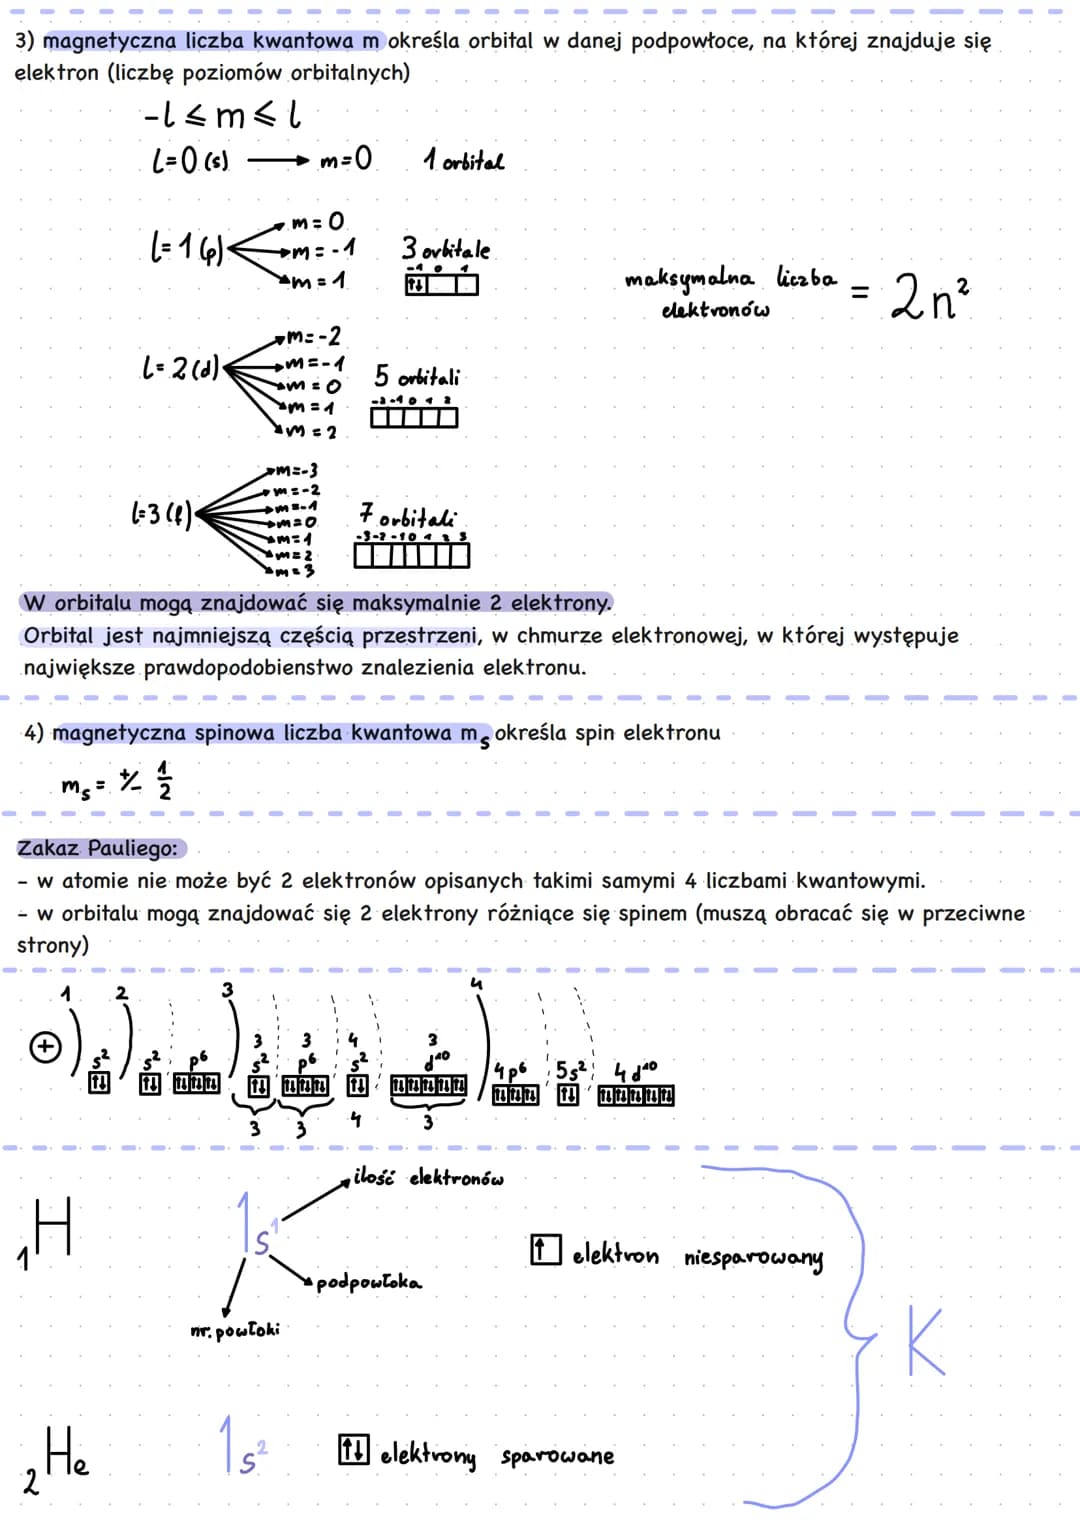 3) magnetyczna liczba kwantowa m określa orbital w danej podpowłoce, na której znajduje się
elektron (liczbę poziomów orbitalnych)
-l ≤ m ≤ l
l=0 (s) → m=0 1 orbital
l=1 (p)
m=0
m=-1
m=1
3 orbitale
-1 0 1
↑↓
maksymalna liczba
elektronów = 2n²
l=2 (d)
m=-2
m=-1
m=0
m=1
m=2
5 orbitali
-2 -1 0 1 2
l=3 (f)
m=-3
m=-2
m=-1
m=0
m=1
m=2
m=3
7 orbitali
-3 -2 -1 0 1 2 3
W orbitalu mogą znajdować się maksymalnie 2 elektrony.
Orbital jest najmniejszą częścią przestrzeni, w chmurze elektronowej, w której występuje
największe prawdopodobienstwo znalezienia elektronu.
4) magnetyczna spinowa liczba kwantowa mₛ określa spin elektronu
mₛ = +/- 1/2
Zakaz Pauliego:
- w atomie nie może być 2 elektronów opisanych takimi samymi 4 liczbami kwantowymi.
- w orbitalu mogą znajdować się 2 elektrony różniące się spinem (muszą obracać się w przeciwne
strony)
1 2 3 4
+ s² s² p⁶ 3 s² 3 p⁶ 4 s² 3 d¹⁰ 4p⁶ 5s² 4d¹⁰
↑↓ ↑↓ ↑↓↑↓↑↓ ↑↓ ↑↓↑↓↑↓ ↑↓ ↑↓↑↓↑↓↑↓↑↓ ↑↓↑↓↑↓ ↑↓ ↑↓↑↓↑↓↑↓↑↓
3 3 4 3
ilość elektronów
₁H 1s¹
↑ elektron niesparowany
podpowłoka
nr. powłoki
K
₂He 1s² ↑↓ elektrony sparowane